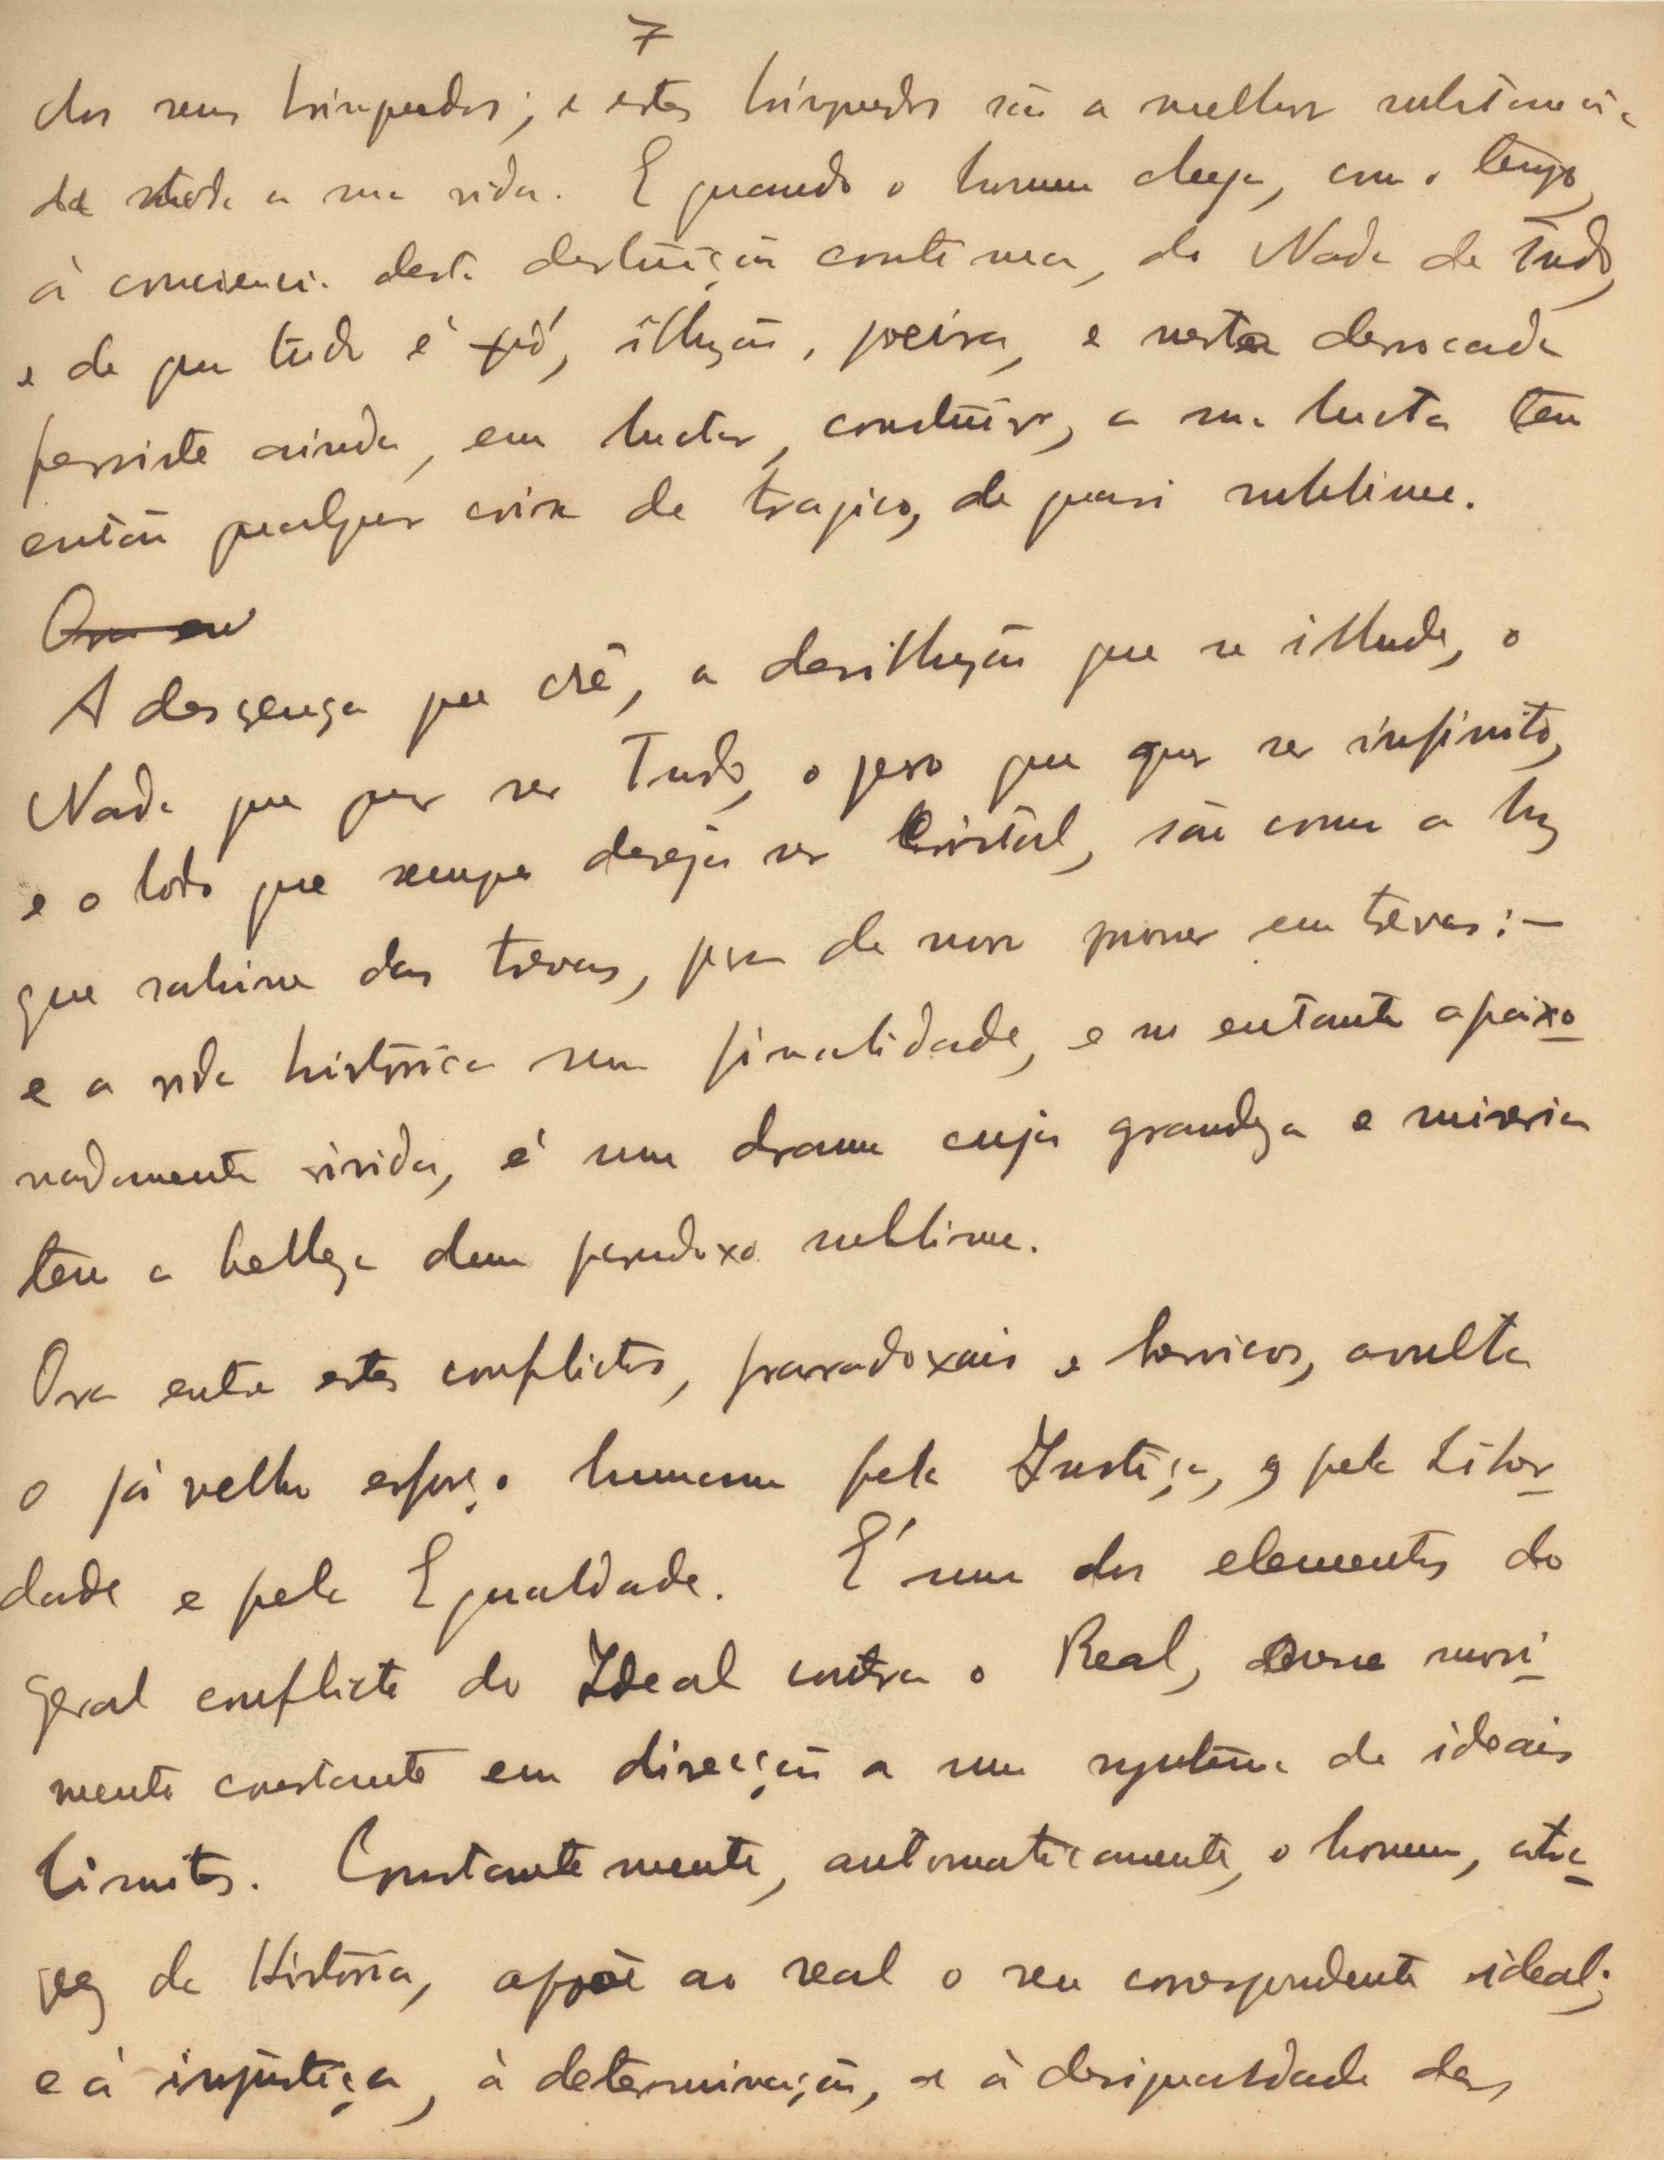 7
dos seus brinquedos; e estes brinquedos são a melhor substancia
de toda a sua vida. E quando o homem chega, com o tempo,
á consciencia desta destruição continua, do Nada de tudo,
e de que tudo é pó, illusão, poeira, e nesta derrocada
persiste ainda, em luctar, construir, a sua lucta tem
então qualquer coisa de tragico, de quasi sublime.
Ora eu
A descrença que crê, a desillusão que se illude, o
Nada que quer ser Tudo, o que quer ser infinito,
e o lodo que sempre deseja ser Cristal, são como a luz
que sahisse das trevas, para de novo morrer em trevas: –
e a vida historica sem finalidade, e no entanto apaixo
nadamente vivida, é um drama cuja grandeza e miseria
tem a belleza dum paradoxo sublime.
Ora entre estes conflictos, paradoxais e heroicos, avulta
o já velho esforço humano pela Justiça, pela Liber
dade e pela Egualdade. É um dos elementos do
geral conflicto do Ideal contra o Real, desse movi
mento constante em direcção a um systema de ideais
limites. Constantemente, automaticamente, o homem, atra
vez da Historia, oppõe ao real o seu correspondente ideal;
e á injustiça, á determinação, e á desigualdade das